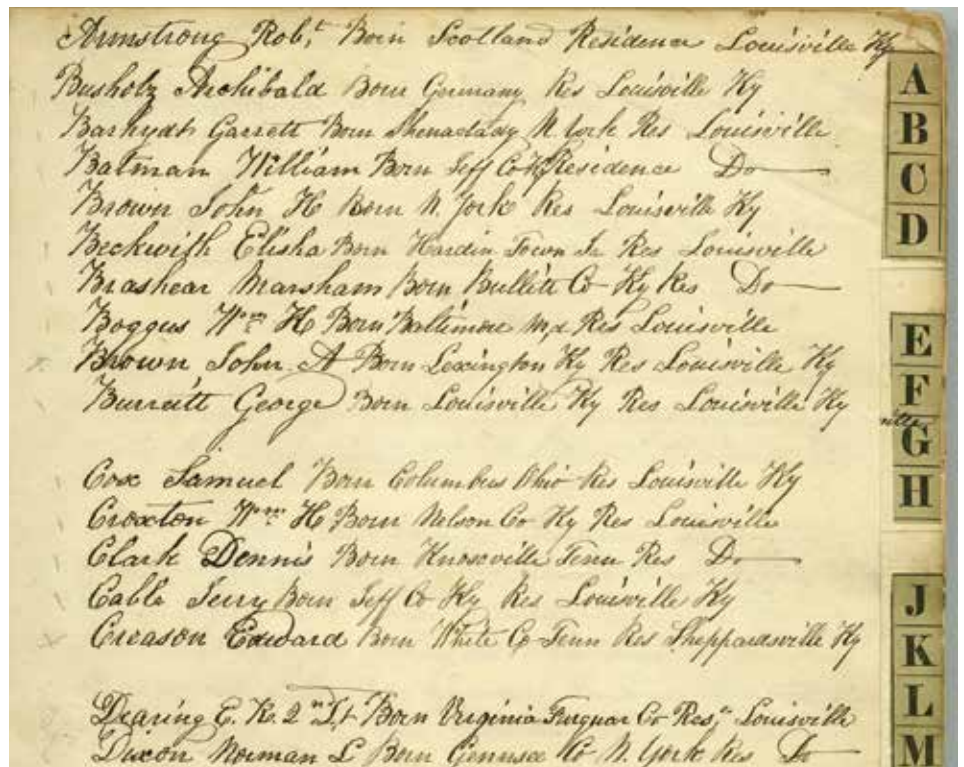 Armstrong Robt. Born Scotland Residence Louisville Ky
Busholz Archibald Born Germany Res Louisville Ky
Barhydt Garrett Born Shenactady N. York Res Louisville
Batman William Born Jeff Co Ky Residence Do
Brown John H Born N. York Res Louisville Ky
Beckwith Elisha Born Hardin Town Ia Res Louisville
Brashear Marsham Born Bullitt Co Ky Res Do
Boggus Wm H Born Baltimore Md Res Louisville
Brown John A Born Lexington Ky Res Louisville Ky
George Born Louisville Ky Res Louisville Ky
ville
Cox Samuel Born Columbus Ohio Res Louisville Ky
Croxton Wm H Born Nelson Co Ky Res Louisville
Clark Dennis Born Knoxville Tenn Res Do
Cable Jerry Born Jeff Co Ky Res Louisville Ky
Creason Edward Born White Co Tenn Res Sheppardsville Ky
Dearing E. K. 2nd Lt Born Virginia Co Res. Louisville
Dixon Norman L Born Gennisee Co N. York Res Do
A
B
C
D
E
F
G
H
J
K
L
M